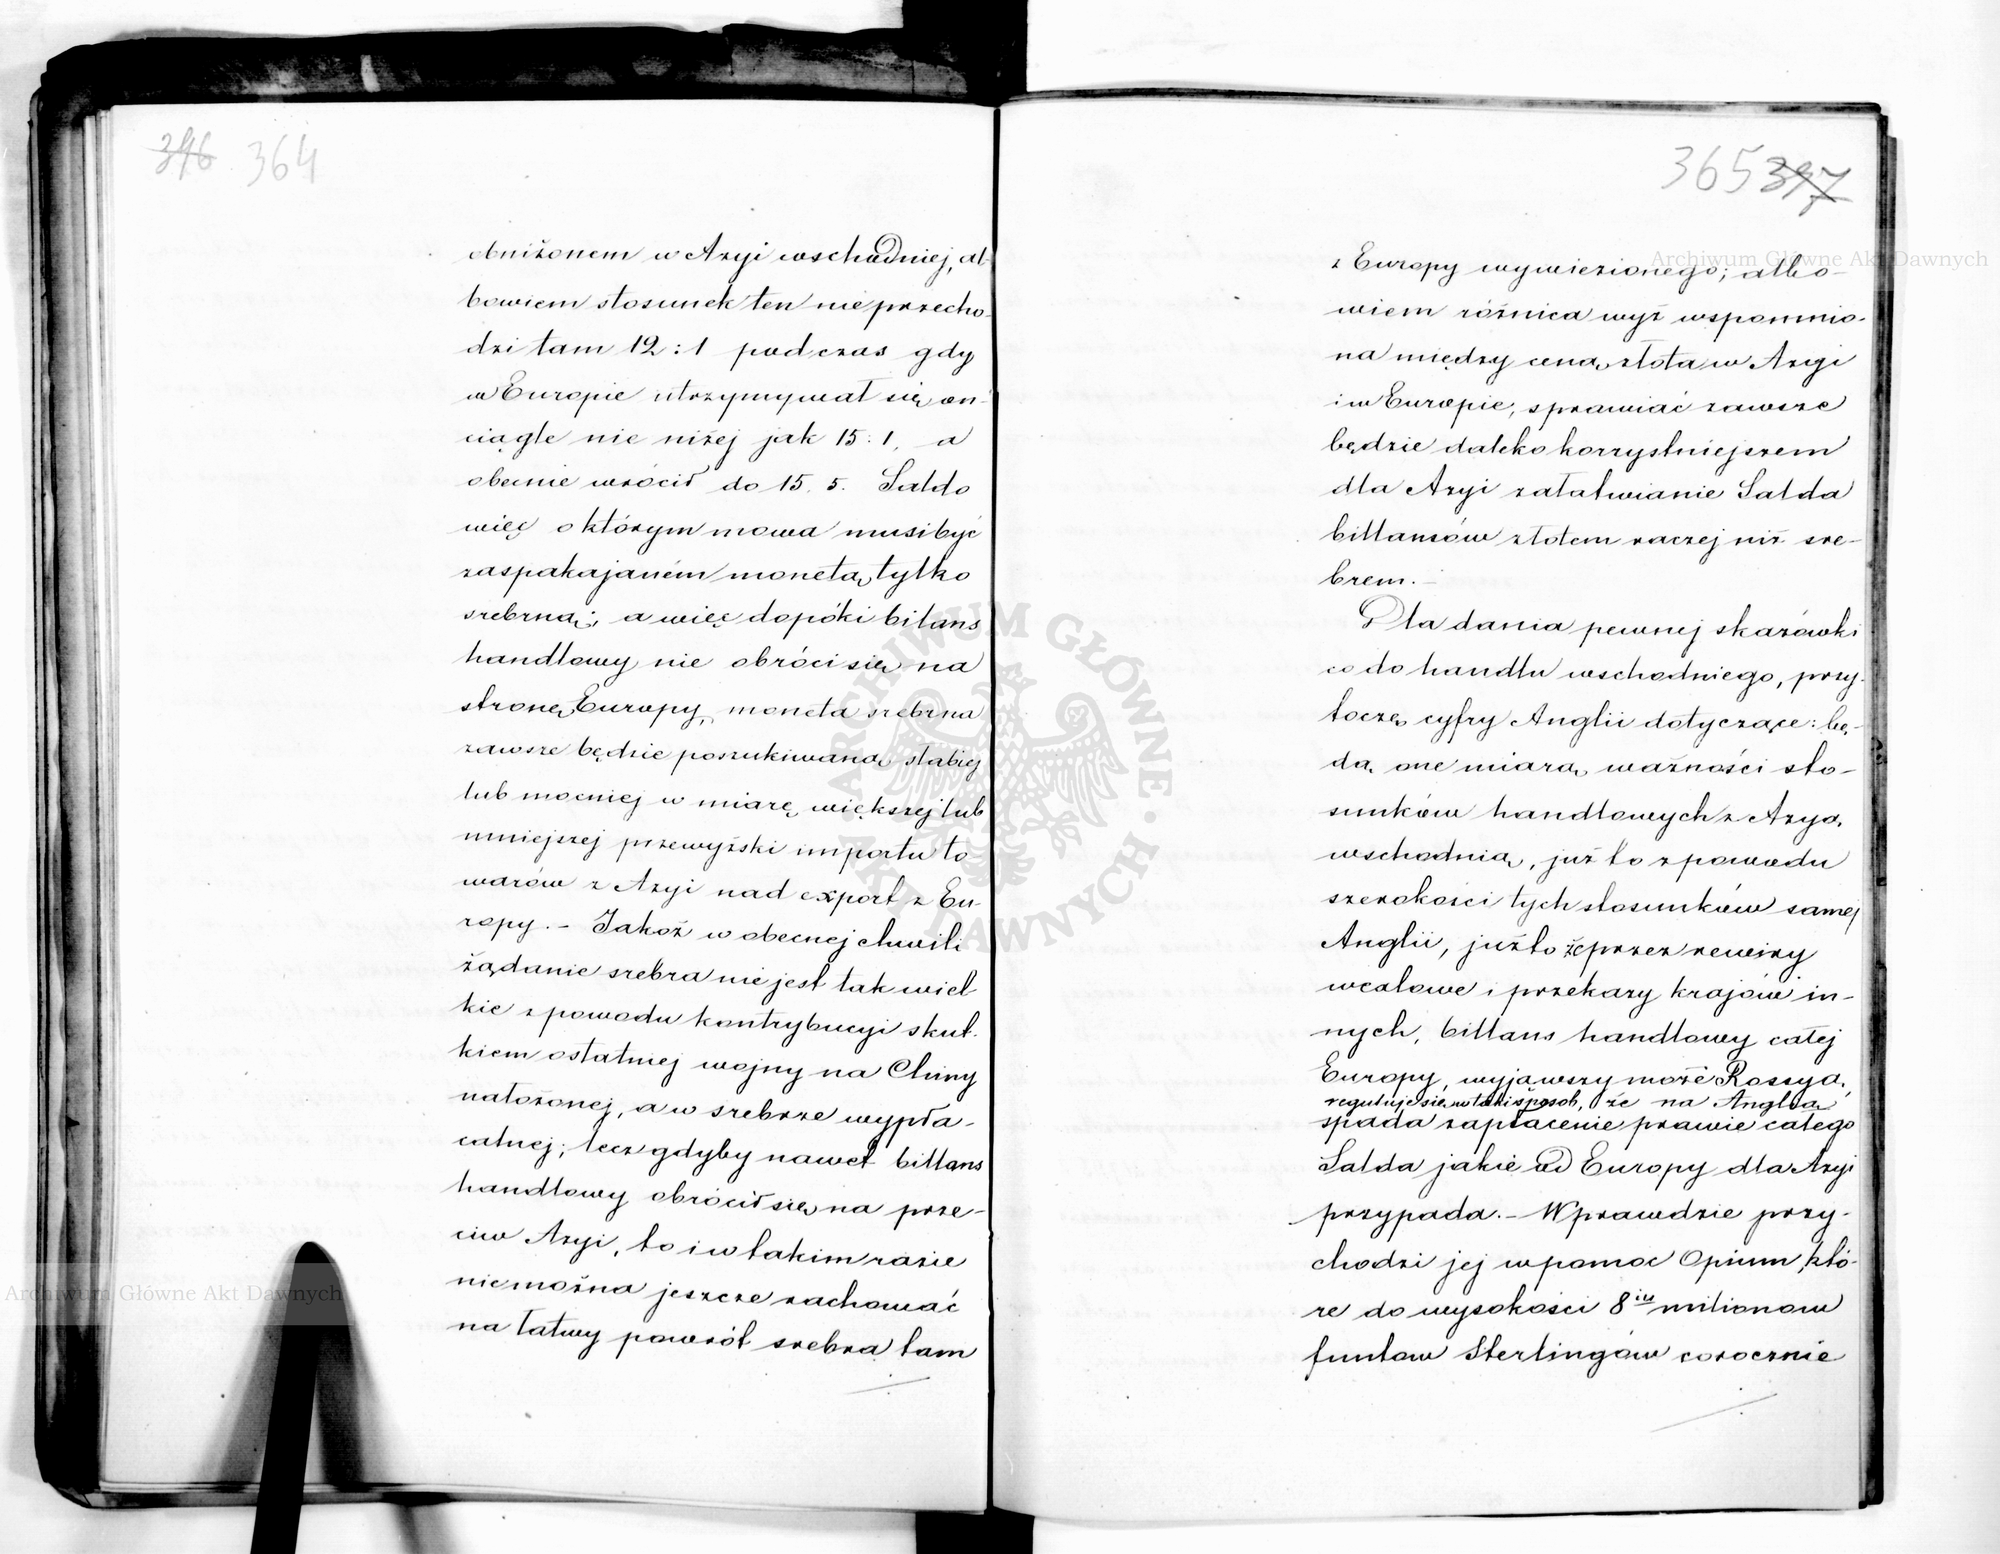 396 364
obniżonem w Azyi wschodniej, al-
bowiem stosunek ten nie przecho-
dzi tam 12:1 podczas gdy
w Europie utrzymywał się on
ciągle nie niżej jak 15:1, a
obecnie wrócił do 15.5. Saldo
więc o którym mowa musi być
zaspakajanem monetą tylko
srebrną; a więc dopóki bilans
handlowy nie obróci się na
stronę Europy, moneta srebrna
zawsze będzie poszukiwaną słabiej
lub mocniej w miarę większej lub
mniejszej przewyżski importu to
warów z Azyi nad export z Eu-
ropy. – Jakoż w obecnej chwili
żądanie srebra nie jest tak wiel
kie z powodu kontrybucyi skut-
kiem ostatniej wojny na Chiny
nałożonej, a w srebrze wypła-
calnej; lecz gdyby nawet billans
handlowy obrócił się na prze-
ciw Azyi, to i w takim razie
nie można jeszcze rachować
na łatwy powrót srebra tam
365 397
z Europy wywiezionego; albo-
wiem różnica wyż wspomnio-
na między ceną złota w Azyi
i w Europie, sprawiać zawsze
będzie daleko korzystniejszem
dla Azyi załatwianie Salda
billansów złotem raczej niż sre-
brem. –
Dla dania pewnej skazówki
co do handlu wschodniego, przy-
toczę cyfry Anglii dotyczące: bę-
dą one miarą ważności sto-
sunków handlowych z Azyą
wschodnią, już to z powodu
szerokości tych stosunków samej
Anglii, już to że przez rewiry
wcalowe i przekazy krajów in-
nych, billans handlowy całej
Europy, wyjąwszy może Rossyą,
reguluje się w taki sposób, że na Anglią
spada zapłacenie prawie całego
Salda jakie od Europy dla Azyi
przypada. – Wprawdzie przy-
chodzi jej w pomoc Opium, któ-
re do wysokości 8iu milionow
funtow Sterlingów corocznie
Archiwum Główne Akt Dawnych
Archiwum Główne Akt Dawnych
ARCHIWUM GŁÓWNE AKT DAWNYCH